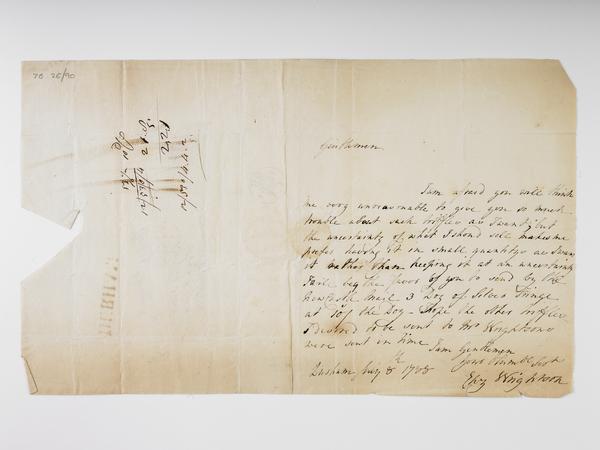 78 28/90
Gentlemen
I am afraid you will think
me very unreasonable to give you so much
trouble about such trifles as I want; but
the uncertainty of what I shoud sell makes me
prefer having it in small quantitys as I want
it rather than keeping it at an uncertainty
I will beg the favor of you to send by the
Newcastle Mail 3 Doz of Silver Fringe
at the Doz - hope the other trifles
I desired to be sent to Mr Wrightsons
were sent in time I am Gentlemen
your Humble Servt
Durham July 8th 1788
Wrightson
DURHAM